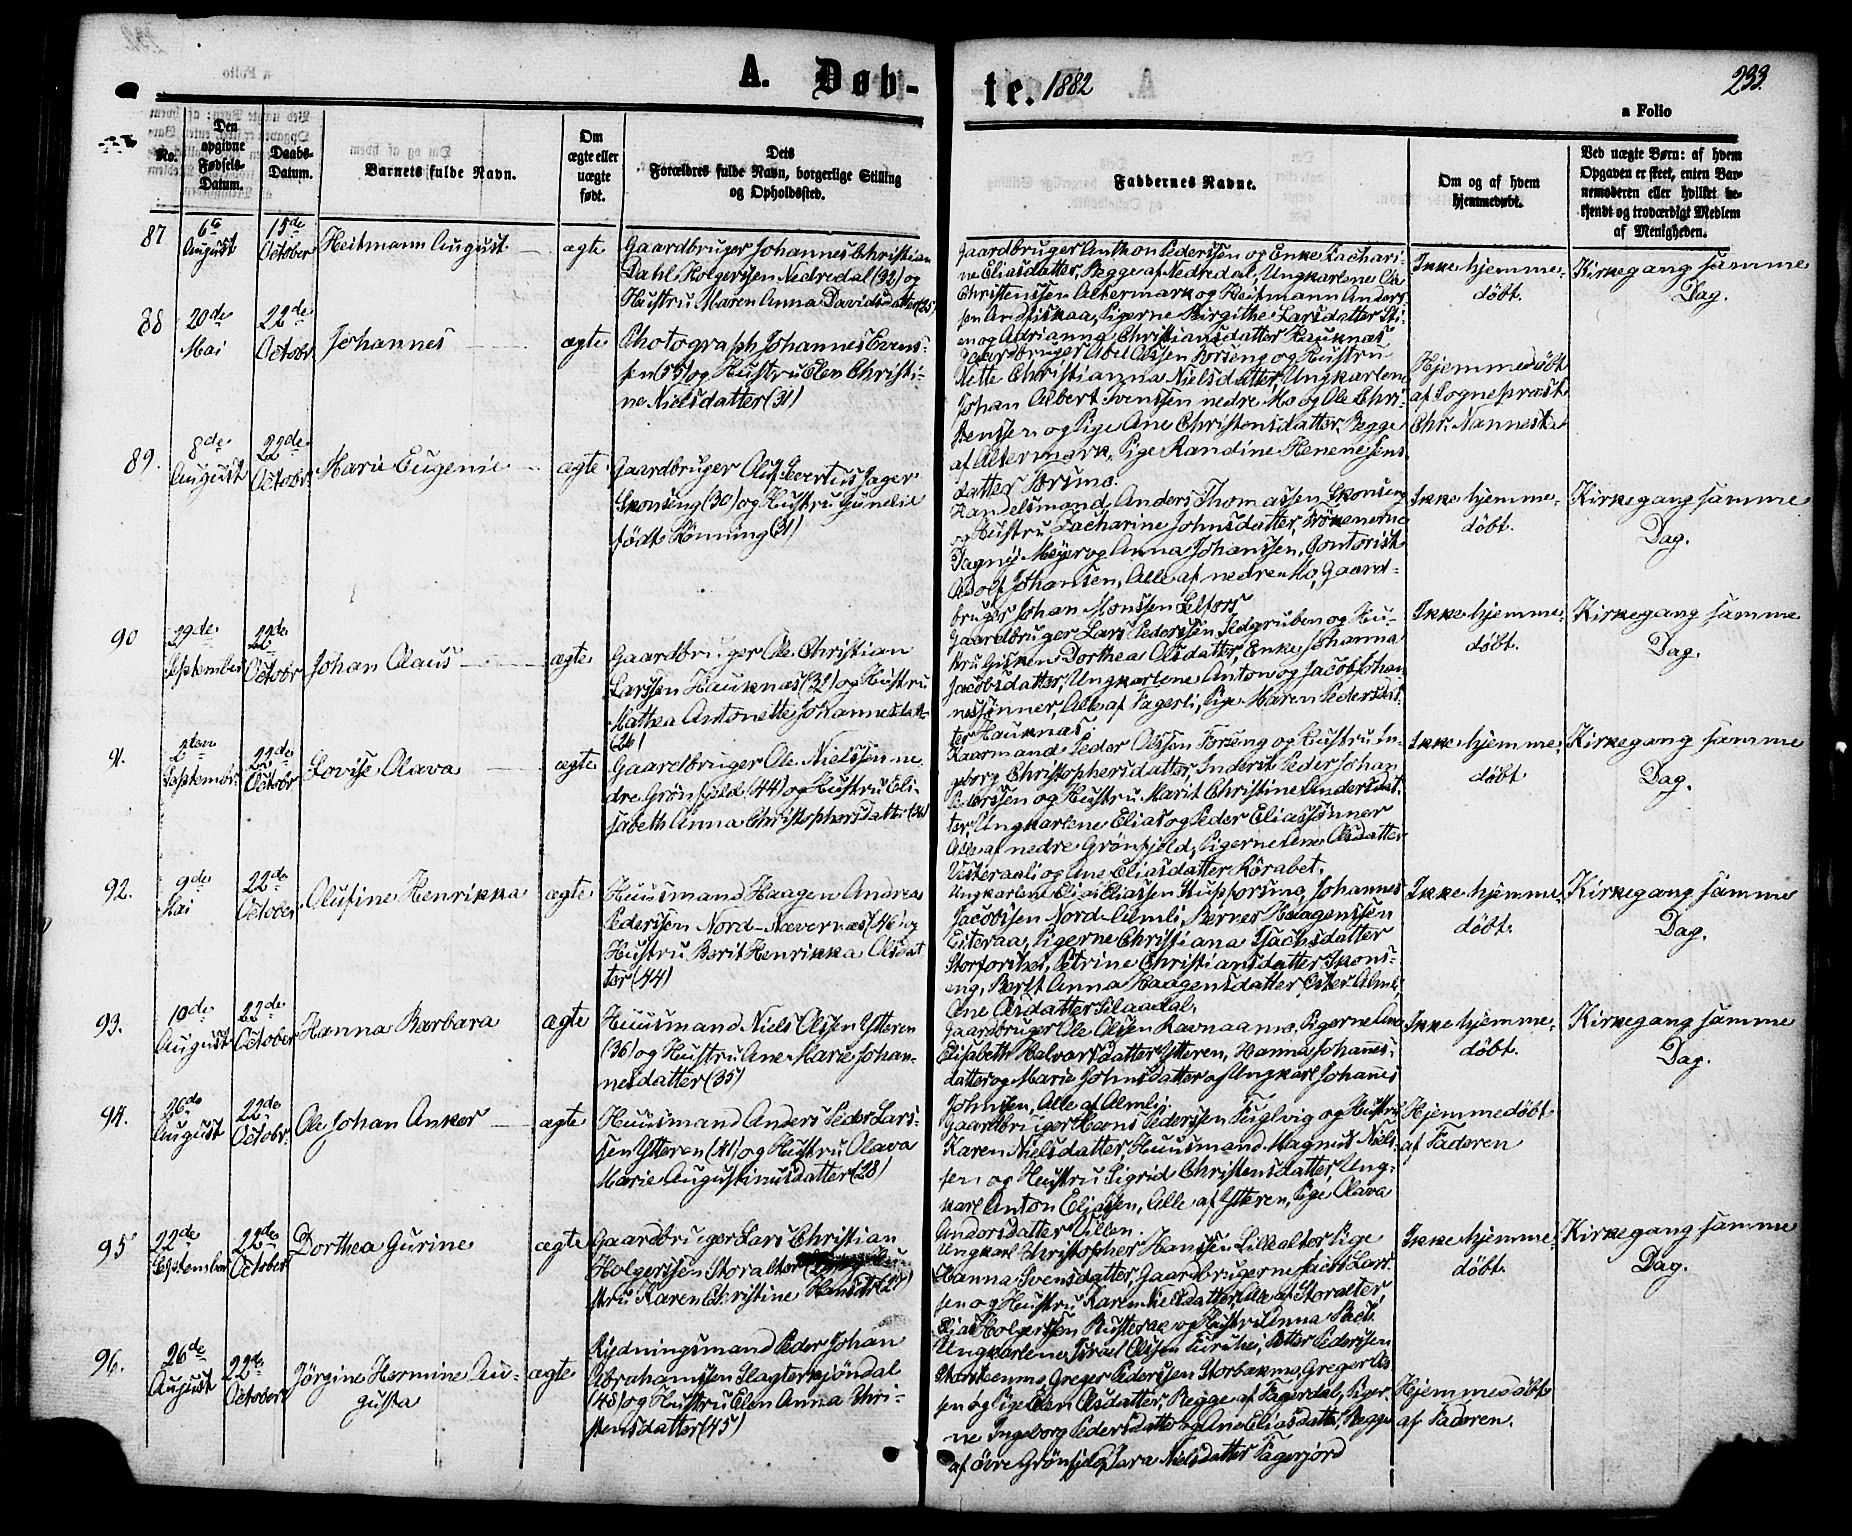 A. Døb-
te. 1882
233.
a Folio
No.
Den opgivne Fødsels-Datum.
Daabs-Datum.
Barnets fulde Navn.
Om ægte eller uægte født.
Dets Forældres fulde Navn, borgerlige Stilling og Opholdssted.
Faddernes Navne.
Om og af hvem hjemmedøbt.
Ved uægte Børn: af hvem Opgaven er skeet, enten Barnemoderen eller hvilket bekjendt og troværdigt Medlem af Menigheden.
87
6te August
15de October
Heitmann August
ægte
Gaardbruger Johannes Christian
Dahl Holgerssen Nedredal (32) og
Hustru Maren Anna Davidsdatter (25)
Gaardbruger Anthon Pederssen og Enke Zachari-
ne Eliasdatter, Begge af Nedredal, Ungkarlene Ole
Christenssen Altermark og Heitmann Anders-
sen Andfiskaa, Pigerne Birgithe Larsdatter Sti-
en og Adrianna Christiansdatter Hauknæs
Ikke hjemme-
døbt.
Kirkegang samme
Dag.
88
20de Mai
22de Octobr
Johannes
ægte
Photograph Johannes Evens-
sen (55) og Hustru Elen Christi-
ne Nielsdatter (31)
Gaardbruger Abel Olssen Forseng og Hustru
Mette Christianna Nielsdatter, Ungkarlene
Johan Albert Svenssen nedre Mo og Ole Chri-
stenssen og Pige Ane Christensdatter, Begge
af Altermark, Pige Randine Helene Jens
datter Forsmo.
Hjemmedøbt
af Sogneprest
Chr. Nannestad
89.
8de August
22de Octobr
Marie Eugenie
ægte
Gaardbruger Oluf Severtius Jager
Skonseng (30) og Hustru Gunelie
født Rønning (31)
Handelsmand Anders Thomassen Skonseng
og Hustru Zacharine Johnsdatter, Frøkenerne
Dagny Meyer og Anna Johanssen, Contorist
Adolf Johansen, Alle af nedre Mo, Gaard-
bruger Johan Monssen Selfors
Ikke hjemme-
døbt.
Kirkegang samme
Dag.
90
29de September
22de Octobr
Johan Olaus
ægte
Gaardbruger Ole Christian
Larssen Hauknæs (32) og Hustru
Mathea Antonette Johannesdatt.
(26)
Gaardbruger Lars Pederssen Ildgruben og Hu-
stru Gisken Dorthea Olsdatter, Enke Johanna
Jacobsdatter, Ungkarlene Anton og Jacob Johan
nessønner, Alle af Fagerli, Pige Maren Pedersdat-
ter Hauknæs.
Ikke hjemme-
døbt.
Kirkegang samme
Dag.
91.
2den Septembr
22de Octobr
Lovise Olava
ægte
Gaardbruger Ole Nielssen ne-
dre Grønfjeld (44) og Hustru Eli-
sabeth Anna Christophersdatter (36)
Kaarmand Peder Olssen Forseng og Hustru In-
geborg Christophersdatter, Inderst Peder Johan
Pederssen og Hustru Marit Christine Andersdat-
ter, Ungkarlene Elias og Peder Eliassønner
Alle af nedre Grønfjeld, Pigerne Lene Olsdatter
Vesteraali og Ane Eliasdatter Rørabet.
Ikke hjemme-
døbt
Kirkegang samme
Dag.
92.
9de Mai
22de October
Olufine Henrikka
ægte
Huusmand Haagen Andreas
Pederssen Nord-Nævernæs (46) og
Hustru Berit Henrikka Olsdat
ter (44)
Ungkarlene Elias Eliassen Stupforsmo, Johannes
Jacobsen Nord-Almli, Berner Haagenssen
Eiteraa, Pigerne Christiana Isachsdatter
Storforshei, Petrine Christiansdatter Skons-
eng, Berit Anna Haagensdatter Øster Almli,
Ane Olsdatter Selaadal.
Ikke hjemme-
døbt.
Kirkegang samme
Dag.
93.
10de August
22de October
Hanna Barbara
ægte
Huusmand Niels Olssen Ytteren
(36) og Hustru Ane Marie Johan-
nesdatter (35)
Gaardbruger Ole Olsen Ravnaamo, Pigerne Ane
Elisabeth Halvorsdatter Ytteren, Hanna Johannes-
datter og Marie Johnsdatter og Ungkarl Johannes
Johnsen, Alle af Almli.
Ikke hjemme-
døbt.
Kirkegang samme
Dag.
94.
26de August
22de Octobr.
Ole Johan Anker
ægte
Huusmand Anders Peder Lars-
sen Ytteren (41) og Hustru Olava
Marie Augustinusdatter (28)
Gaardbruger Hans Pederssen Fuglvig og Hustru
Karen Nielsdatter, Huusmand Magnus Niels-
sen og Hustru Sigrid Christensdatter, Ung-
karl Anton Eliassen, Alle af Ytteren, Pige Olava
Andorsdatter Villen.
Hjemmedøbt
af Faderen
95
22de September
22de October
Dorthea Gurine
ægte
Gaardbruger Lars Christian
Holgerssen Storalter
stru Karen Christine Hansdtr (27)
Ungkarl Christopher Hanssen Lillealter, Pige
Hanna Svensdatter, Gaardbrugerne Jacob Lars-
sen og Hustru Karen Nielsdatter, Alle af Storalter,
Elias Holgerssen Rusteraa og Hustru Anna
Ikke hjemme-
døbt.
Kirkegang samme
Dag.
96.
26de August
22de October
Jørgine Hermine Au-
gusta
ægte
Rydningsmand Peder Johan
Abrahamsen Slagterkjøndal
(48) og Hustru Elen Anna Chri-
stensdatter (45)
Ungkarlene Israel Olssen Furuhei, Petter Pederssen
Storbenmo, Greger Pederssen Storbenmo, Greger Ols
sen og Pige Elen Olsdatter, Begge af Fagerdal, Piger-
ne Ingeborg Pedersdatter og Ane Eliasdatter, Begge
af Øvre Grønfjeld, Sara Nielsdatter Fagerjord
Hjemmedøbt
af Faderen.